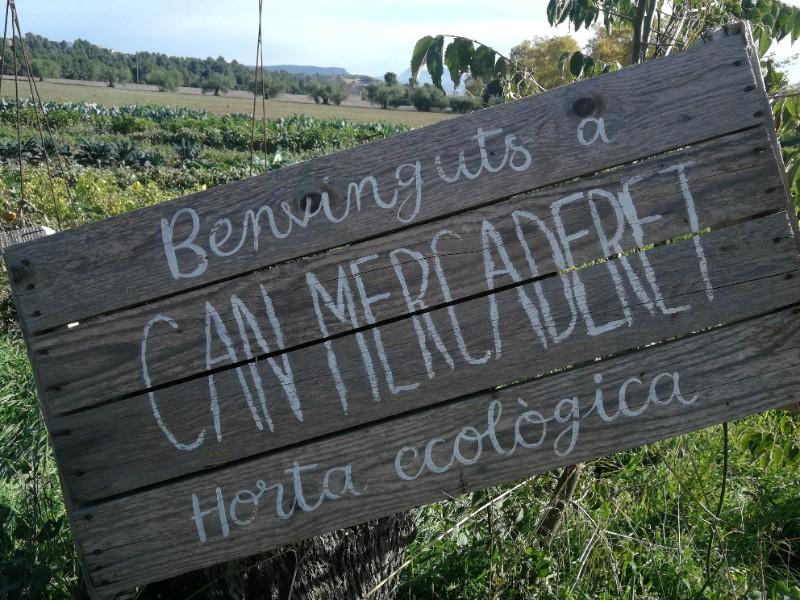 Benvinguts a
CAN MERCADERET
Horta ecològica